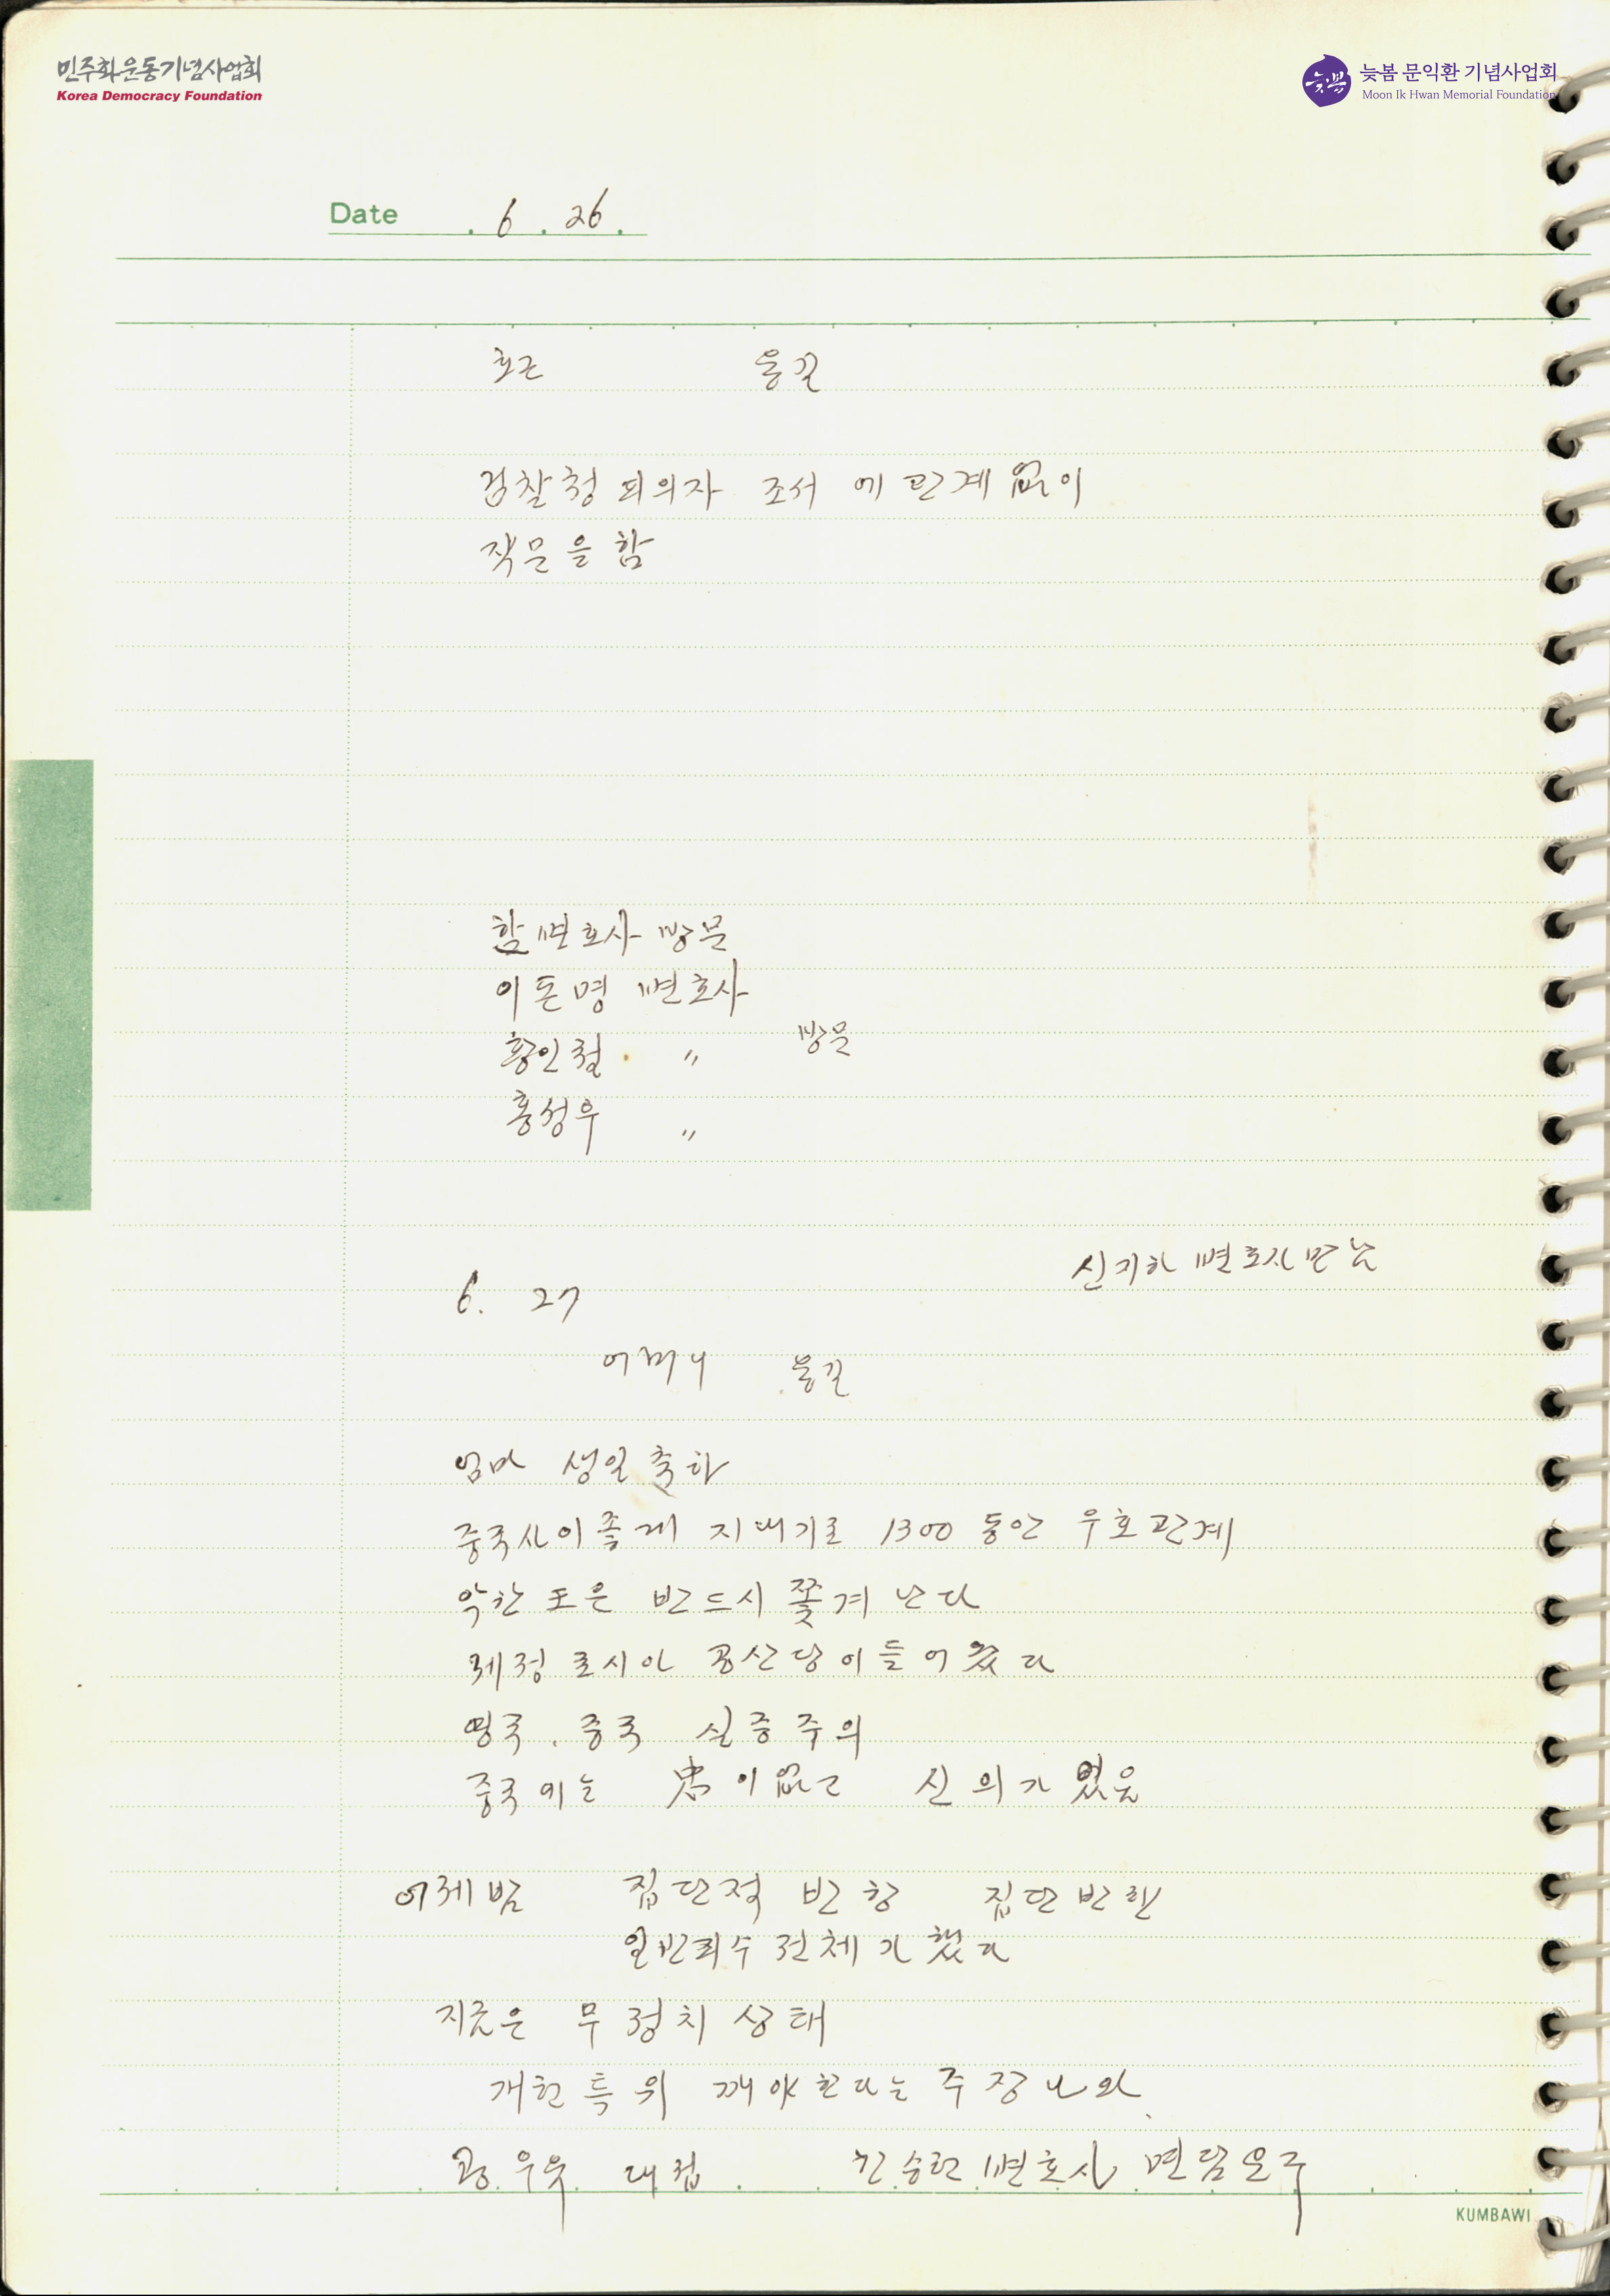 민주화운동기념사업회
Korea Democracy Foundation
늦봄
늦봄 문익환 기념사업회
Moon Ik Hwan Memorial Foundation
Date . 6 . 26 .
호근 용길
검찰청 피의자 조서 에 관계 없이
작문을 함
함 변호사 방문
이돈명 변호사
황인철 〃 방문
홍성우 〃
신기하 변호사 만남
6. 27
어머니 용길
엄마 생일 축하
중국사이 좋게 지내기로 1300 동안 우호관계
악한 또은 반드시 쫓겨 난다
제정 로시아 공산당이 들어왔다
영국 . 중국 실증주의
중국에는 忠이 없고 신의가 있음
어제밤 집단적 반항 집단 반란
일반죄수 전체가 했다
지금은 무정치 상태
개헌 특위 깨야 한다는 주장 나와
콩우유 대접 한승헌 변호사 면담 요구
KUMBAWI